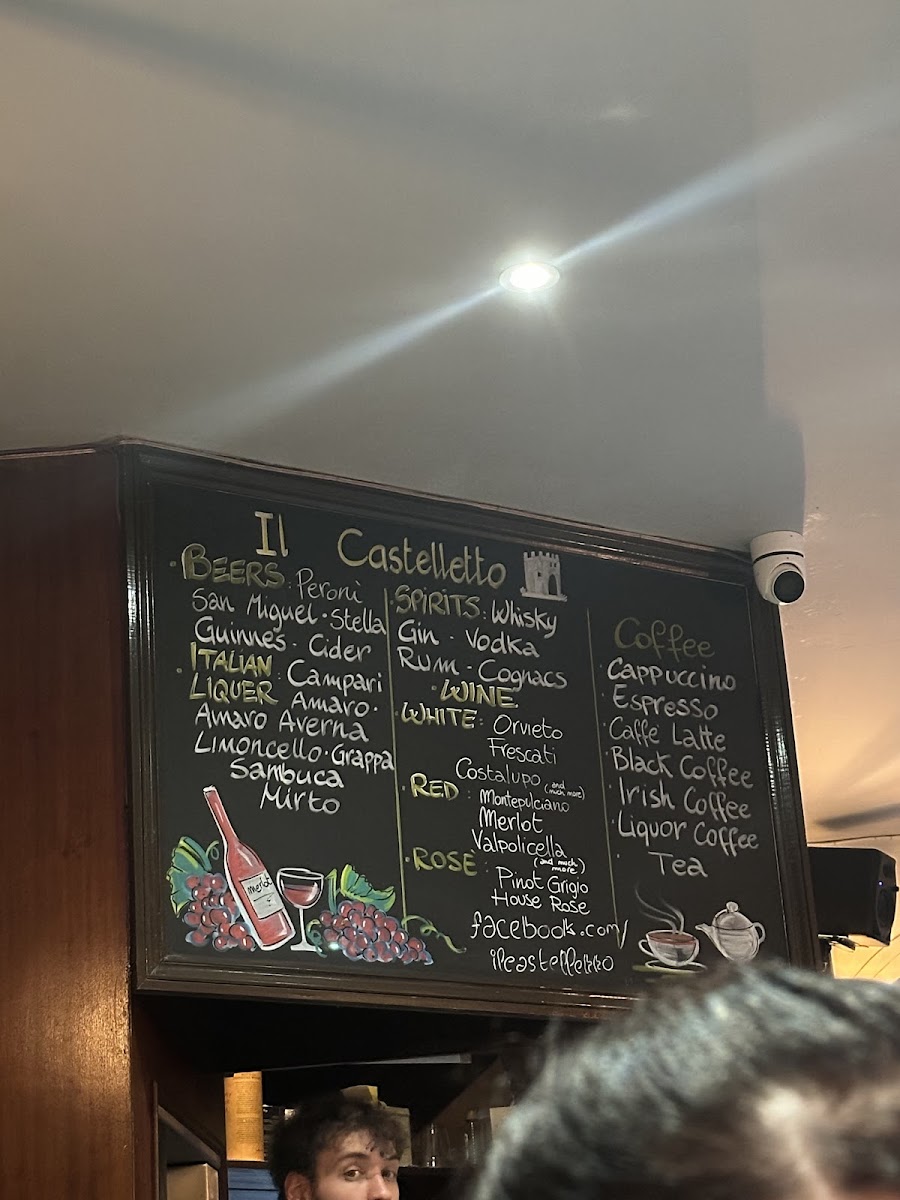 Il Castelletto
· BEERS: Peronì
San Miguel · Stella
Guinnes · Cider
· ITALIAN LIQUER: Campari
Amaro ·
Amaro Averna
Limoncello · Grappa
Sambuca
Mirto
merlot
· SPIRITS: Whisky
Gin · Vodka
Rum · Cognacs
· WINE
· WHITE: Orvieto
Frescati
Costalupo (and much more)
· RED: Montepulciano
Merlot
Valpolicella
(and much more)
· ROSE: Pinot Grigio
House Rose
facebook.com/
ilcastelletto
Coffee
· Cappuccino
· Espresso
· Caffé Latte
· Black Coffee
· Irish Coffee
· Liquor Coffee
· Tea